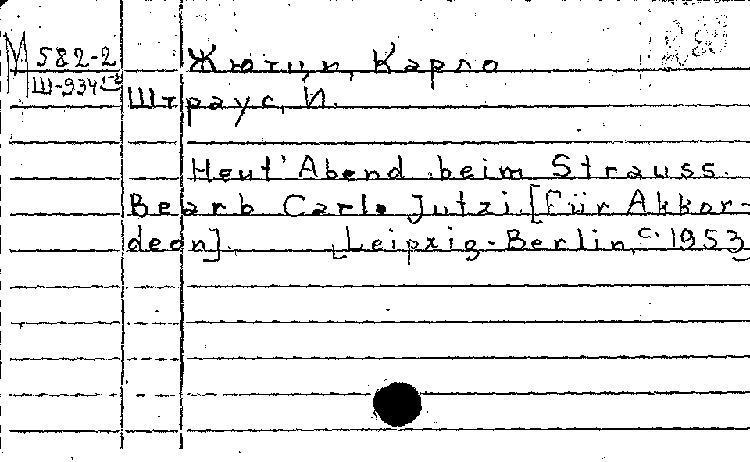 М 582-2
Ш-934
Жютци, Карло
Штраус, И.
Heut' Abend beim Strauss.
Bearb Carlo Jutzi. [Für Akkor-
deon].   [Leipzig-Berlin, c. 1953]